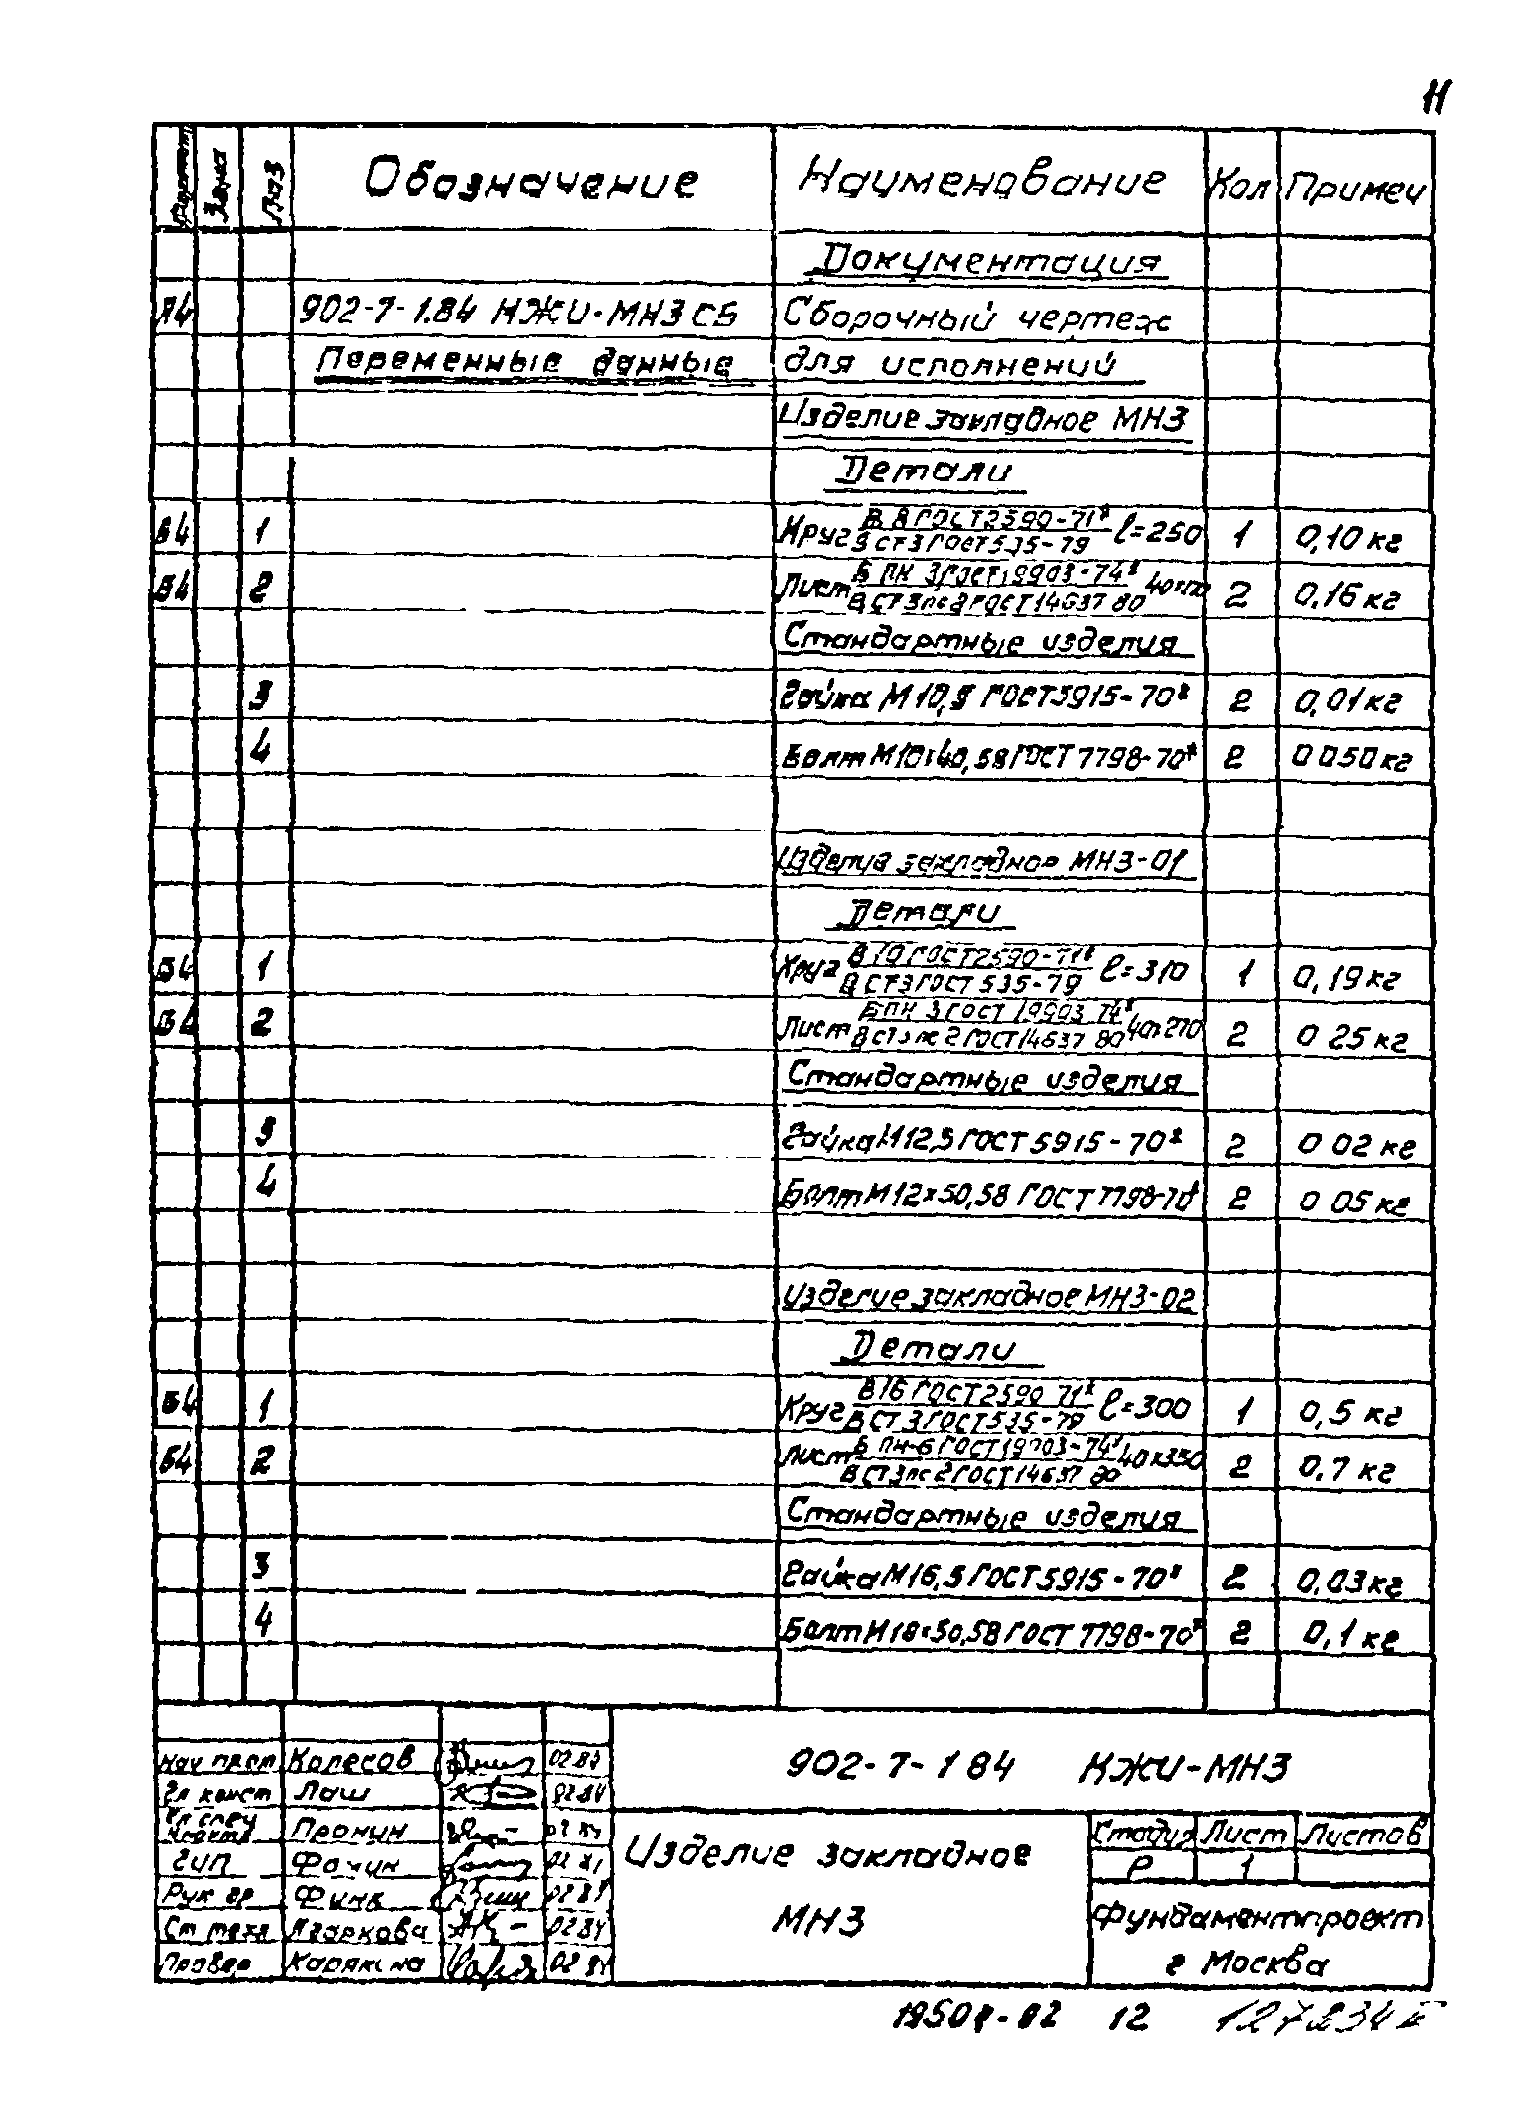 11
Формат Зона Поз Обозначение Наименование Кол Примеч
Документация
А4 902-7-1.84 КЖИ-МН3 СБ Сборочный чертеж
Переменные данные для исполнений
Изделие закладное МН3
Детали
Б4 1 Круг В 8 ГОСТ 2590-71* / В СТ3 ГОСТ 535-79 ℓ=250 1 0,10 кг
Б4 2 Лист Б ПН 3 ГОСТ 19903-74* / В СТ3пс2 ГОСТ 14637 80 2 0,16 кг
Стандартные изделия
3 Гайка М10,5 ГОСТ 5915-70* 2 0,01 кг
4 Болт М10x40,58 ГОСТ 7798-70* 2 0 050 кг
Изделие закладное МН3-01
Детали
Б4 1 Круг В 10 ГОСТ 2590-71* / В СТ3 ГОСТ 535-79 ℓ=310 1 0,19 кг
Б4 2 Лист Б ПН 3 ГОСТ 19903 74* / В СТ3пс2 ГОСТ 14637 80 40x270 2 0 25 кг
Стандартные изделия
3 Гайка М12,5 ГОСТ 5915-70* 2 0 02 кг
4 Болт М12x50,58 ГОСТ 7798-70* 2 0 05 кг
Изделие закладное МН3-02
Детали
Б4 1 Круг В 16 ГОСТ 2590 71* / В СТ3 ГОСТ 535-79 ℓ=300 1 0,5 кг
Б4 2 Лист Б ПН-6 ГОСТ 19903-74* / В СТ3пс2 ГОСТ 14637 80 40x350 2 0,7 кг
Стандартные изделия
3 Гайка М16,5 ГОСТ 5915-70* 2 0,03 кг
4 Болт М16x50,58 ГОСТ 7798-70* 2 0,1 кг
902-7-1 84 КЖИ-МН3
Нач Колесов 02 84
Гл конст Лаш 02 84
Гл спец Пронин 02 84
ГИП Фомин 02 84
Рук гр Финк 02 84
Ст техн 02 84
Провер Карякина 02 84
Изделие закладное
МН3
Стадия Лист Листов
Р 1
Фундаментпроект
г Москва
12